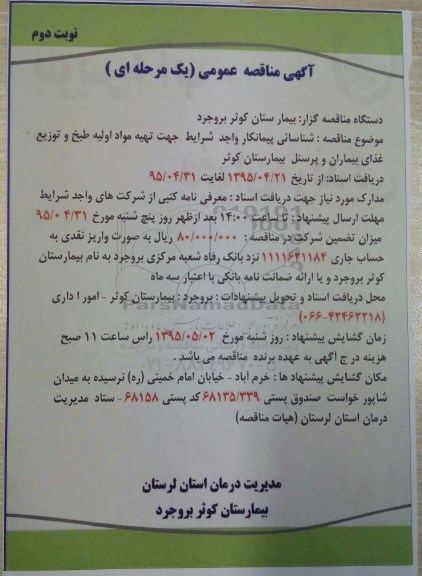 نوبت دوم
آگهی مناقصه عمومی (یک مرحله ای )
دستگاه مناقصه گزار: بیمار ستان کوثر بروجرد
موضوع مناقصه : شناسائی پیمانکار واجد شرایط جهت تهیه مواد اولیه طبخ و توزیع
غذای بیماران و پرسنل بیمارستان کوثر
دریافت اسناد: از تاریخ ۱۳۹۵/۰۴/۲۱ لغایت ۹۵/۰۴/۳۱
مدارک مورد نیاز جهت دریافت اسناد : معرفی نامه کتبی از شرکت های واجد شرایط
مهلت ارسال پیشنهاد : تا ساعت ۱۴:۰۰ بعد ازظهر روز پنج شنبه مورخ ۹۵/۰ ۴/۳۱
میزان تضمین شرکت در مناقصه : ۸۰/۰۰۰/۰۰۰ ریال به صورت واریز نقدی به
حساب جاری ۱۱۱۱۶۴۱۱۸۴ نزد بانک رفاه شعبه مرکزی بروجرد به نام بیمارستان
کوثر بروجرد و یا ارائه ضمانت نامه بانکی با اعتبار سه ماه
محل دریافت اسناد و تحویل پیشنهادات : بروجرد : بیمارستان کوثر - امور ا داری
(۰۶۶-۴۲۴۶۲۲۱۸)
زمان گشایش پیشنهاد : روز شنبه مورخ ۱۳۹۵/۰۵/۰۲ راس ساعت ۱۱ صبح
هزینه در ج آگهی به عهده برنده مناقصه می باشد .
مکان گشایش پیشنهاد ها : خرم آباد - خیابان امام خمینی (ره) نرسیده به میدان
شاپور خواست صندوق پستی ۶۸۱۳۵/۳۳۹ کد پستی ۶۸۱۵۸ - ستاد مدیریت
درمان استان لرستان (هیات مناقصه)
مدیریت درمان استان لرستان
بیمارستان کوثر بروجرد
ParsNamadData